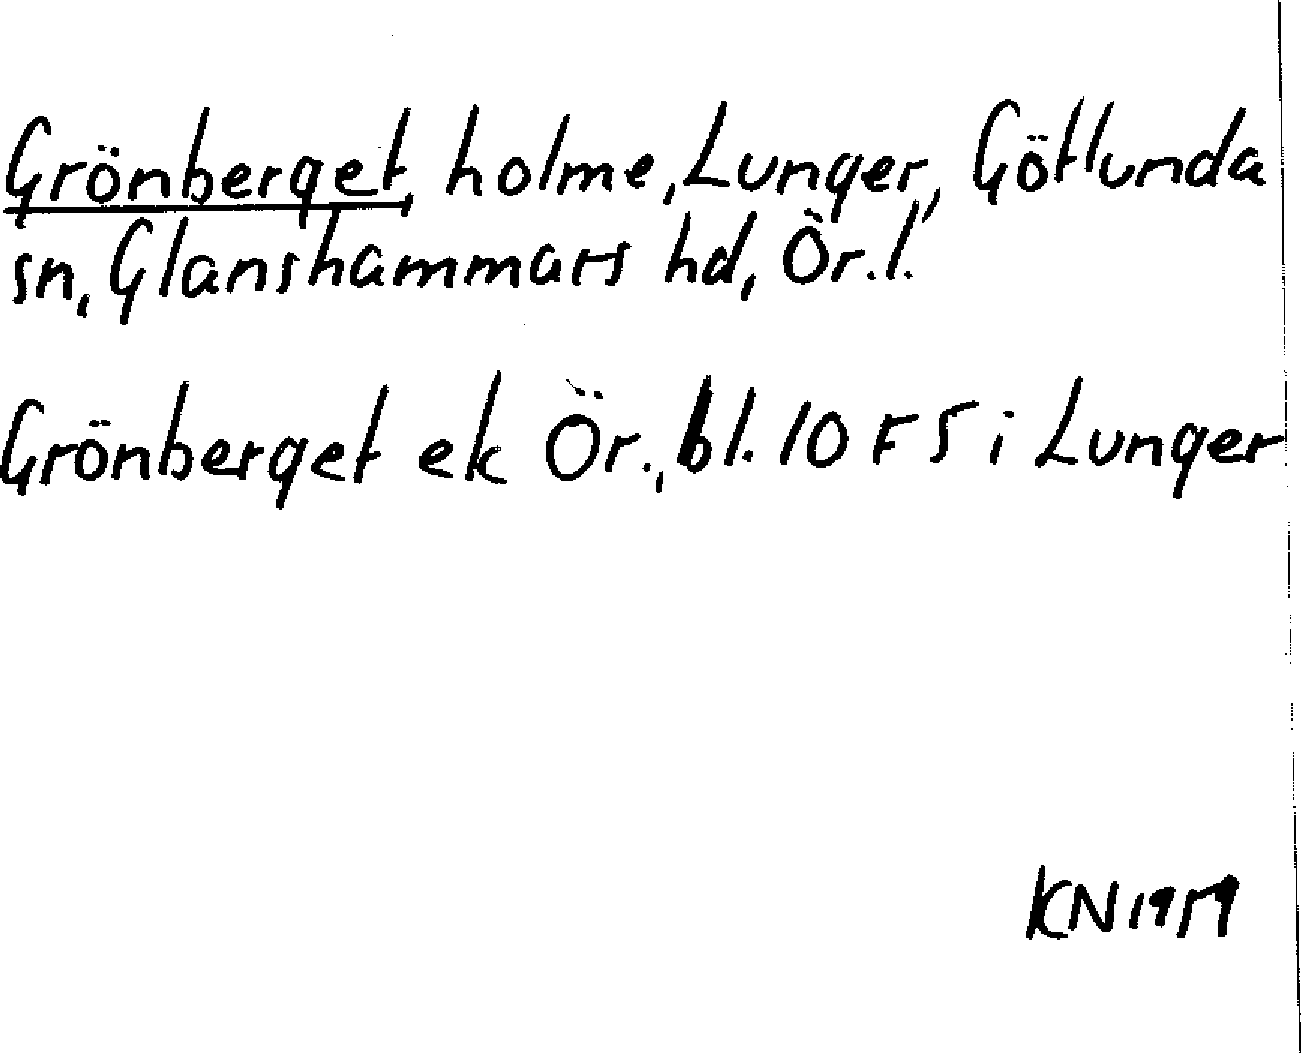 Grönberget, holme, Lunger, Götlunda
sn, Glanshammars hd, Ör. l.
Grönberget ek Ör., bl. 10 F 5 i Lunger
KN 1959